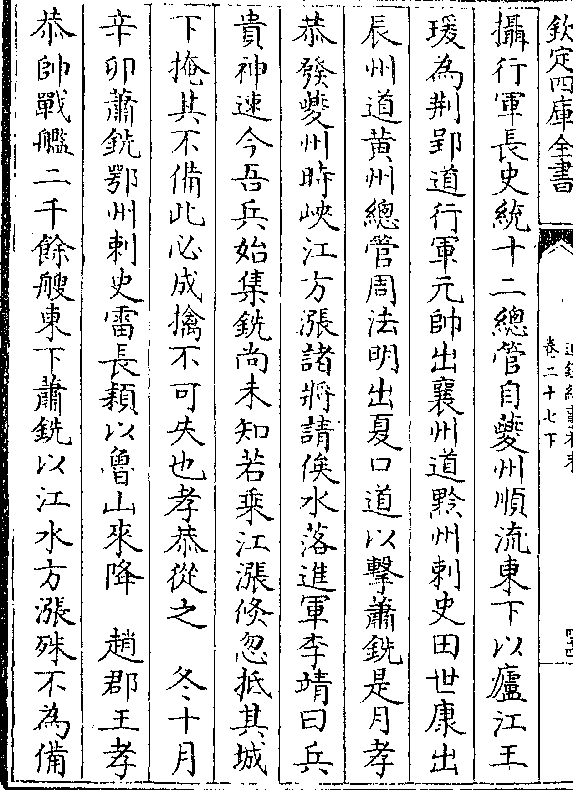 欽定四庫全書
通鑑紀事本末
卷二十七下
攝行軍長史統十二總管自夔州順流東下以廬江王
瑗為荆郢道行軍元帥出襄州道黔州刺史田世康出
辰州道黄州總管周法明出夏口道以擊蕭銑是月孝
恭發夔州時峽江方漲諸將請俟水落進軍李靖曰兵
貴神速今吾兵始集銑尚未知若乘江漲倐忽抵其城
下掩其不備此必成擒不可失也孝恭從之　冬十月
辛卯蕭銑鄂州刺史雷長頴以魯山來降　趙郡王孝
恭帥戰艦二千餘艘東下蕭銑以江水方漲殊不為備